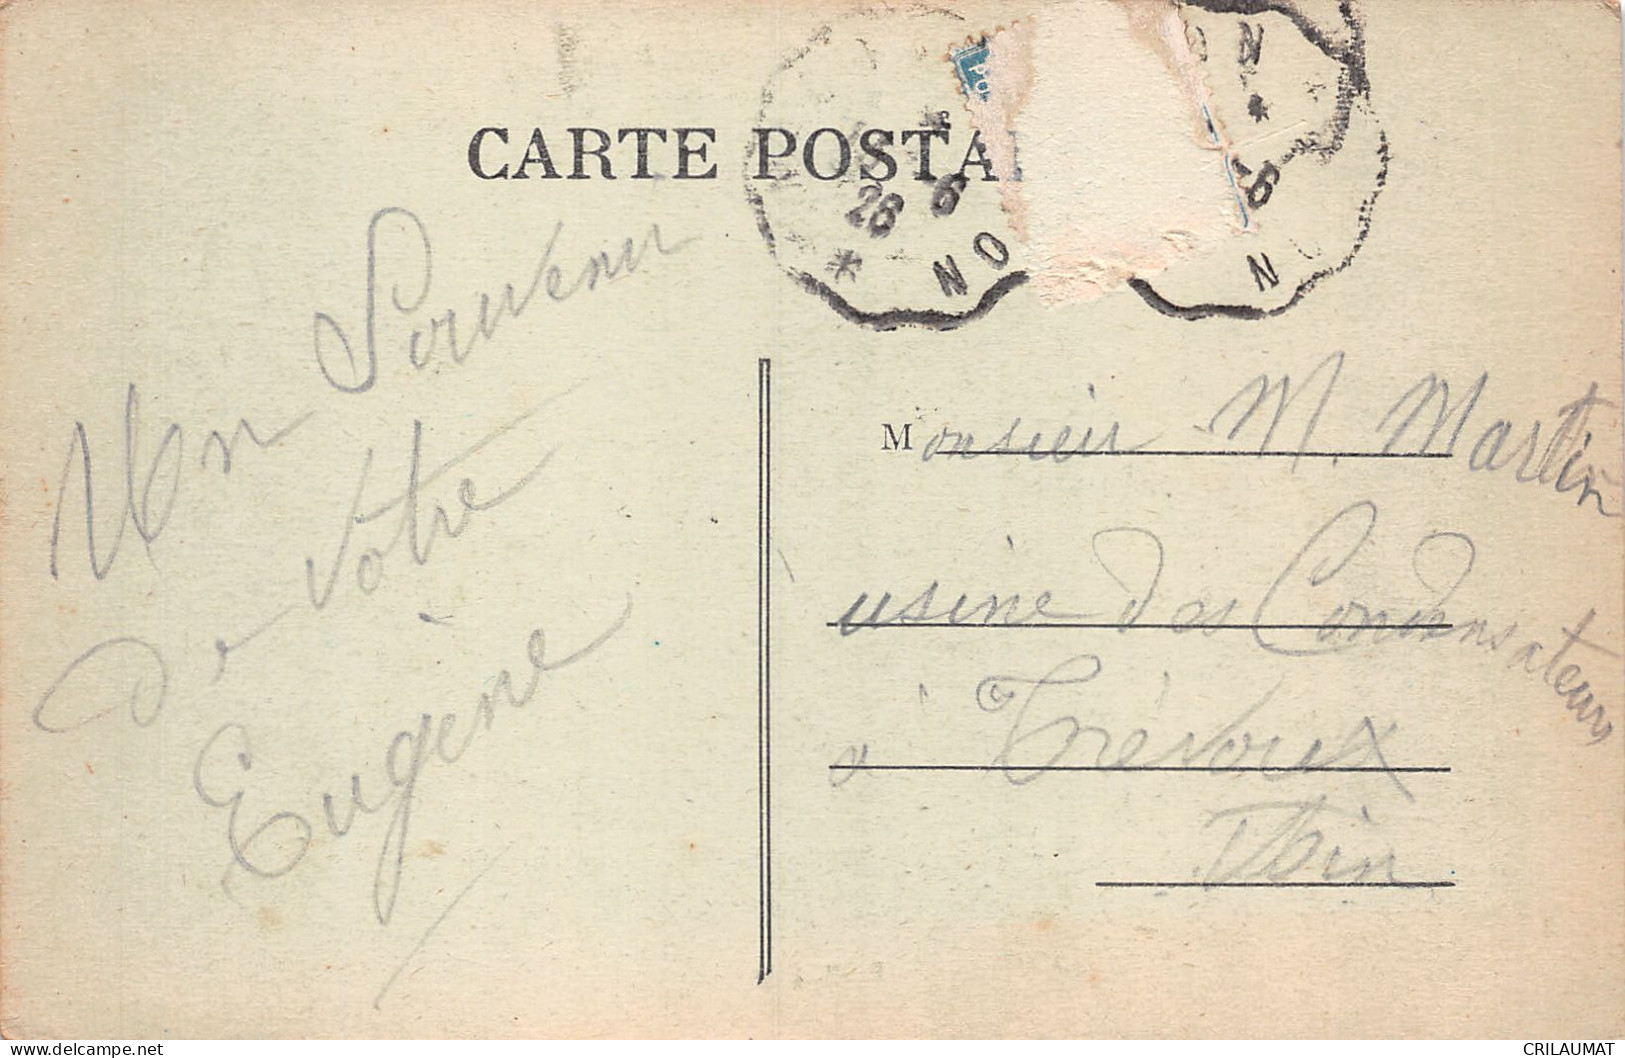 CARTE POSTA
26 6
ON
N
-6
N
PO
Un Souvenir
de votre
Eugène
Monsieur M. Martin
usine des Condensateurs
à Trévoux
Ain
www.delcampe.net
CRILAUMAT